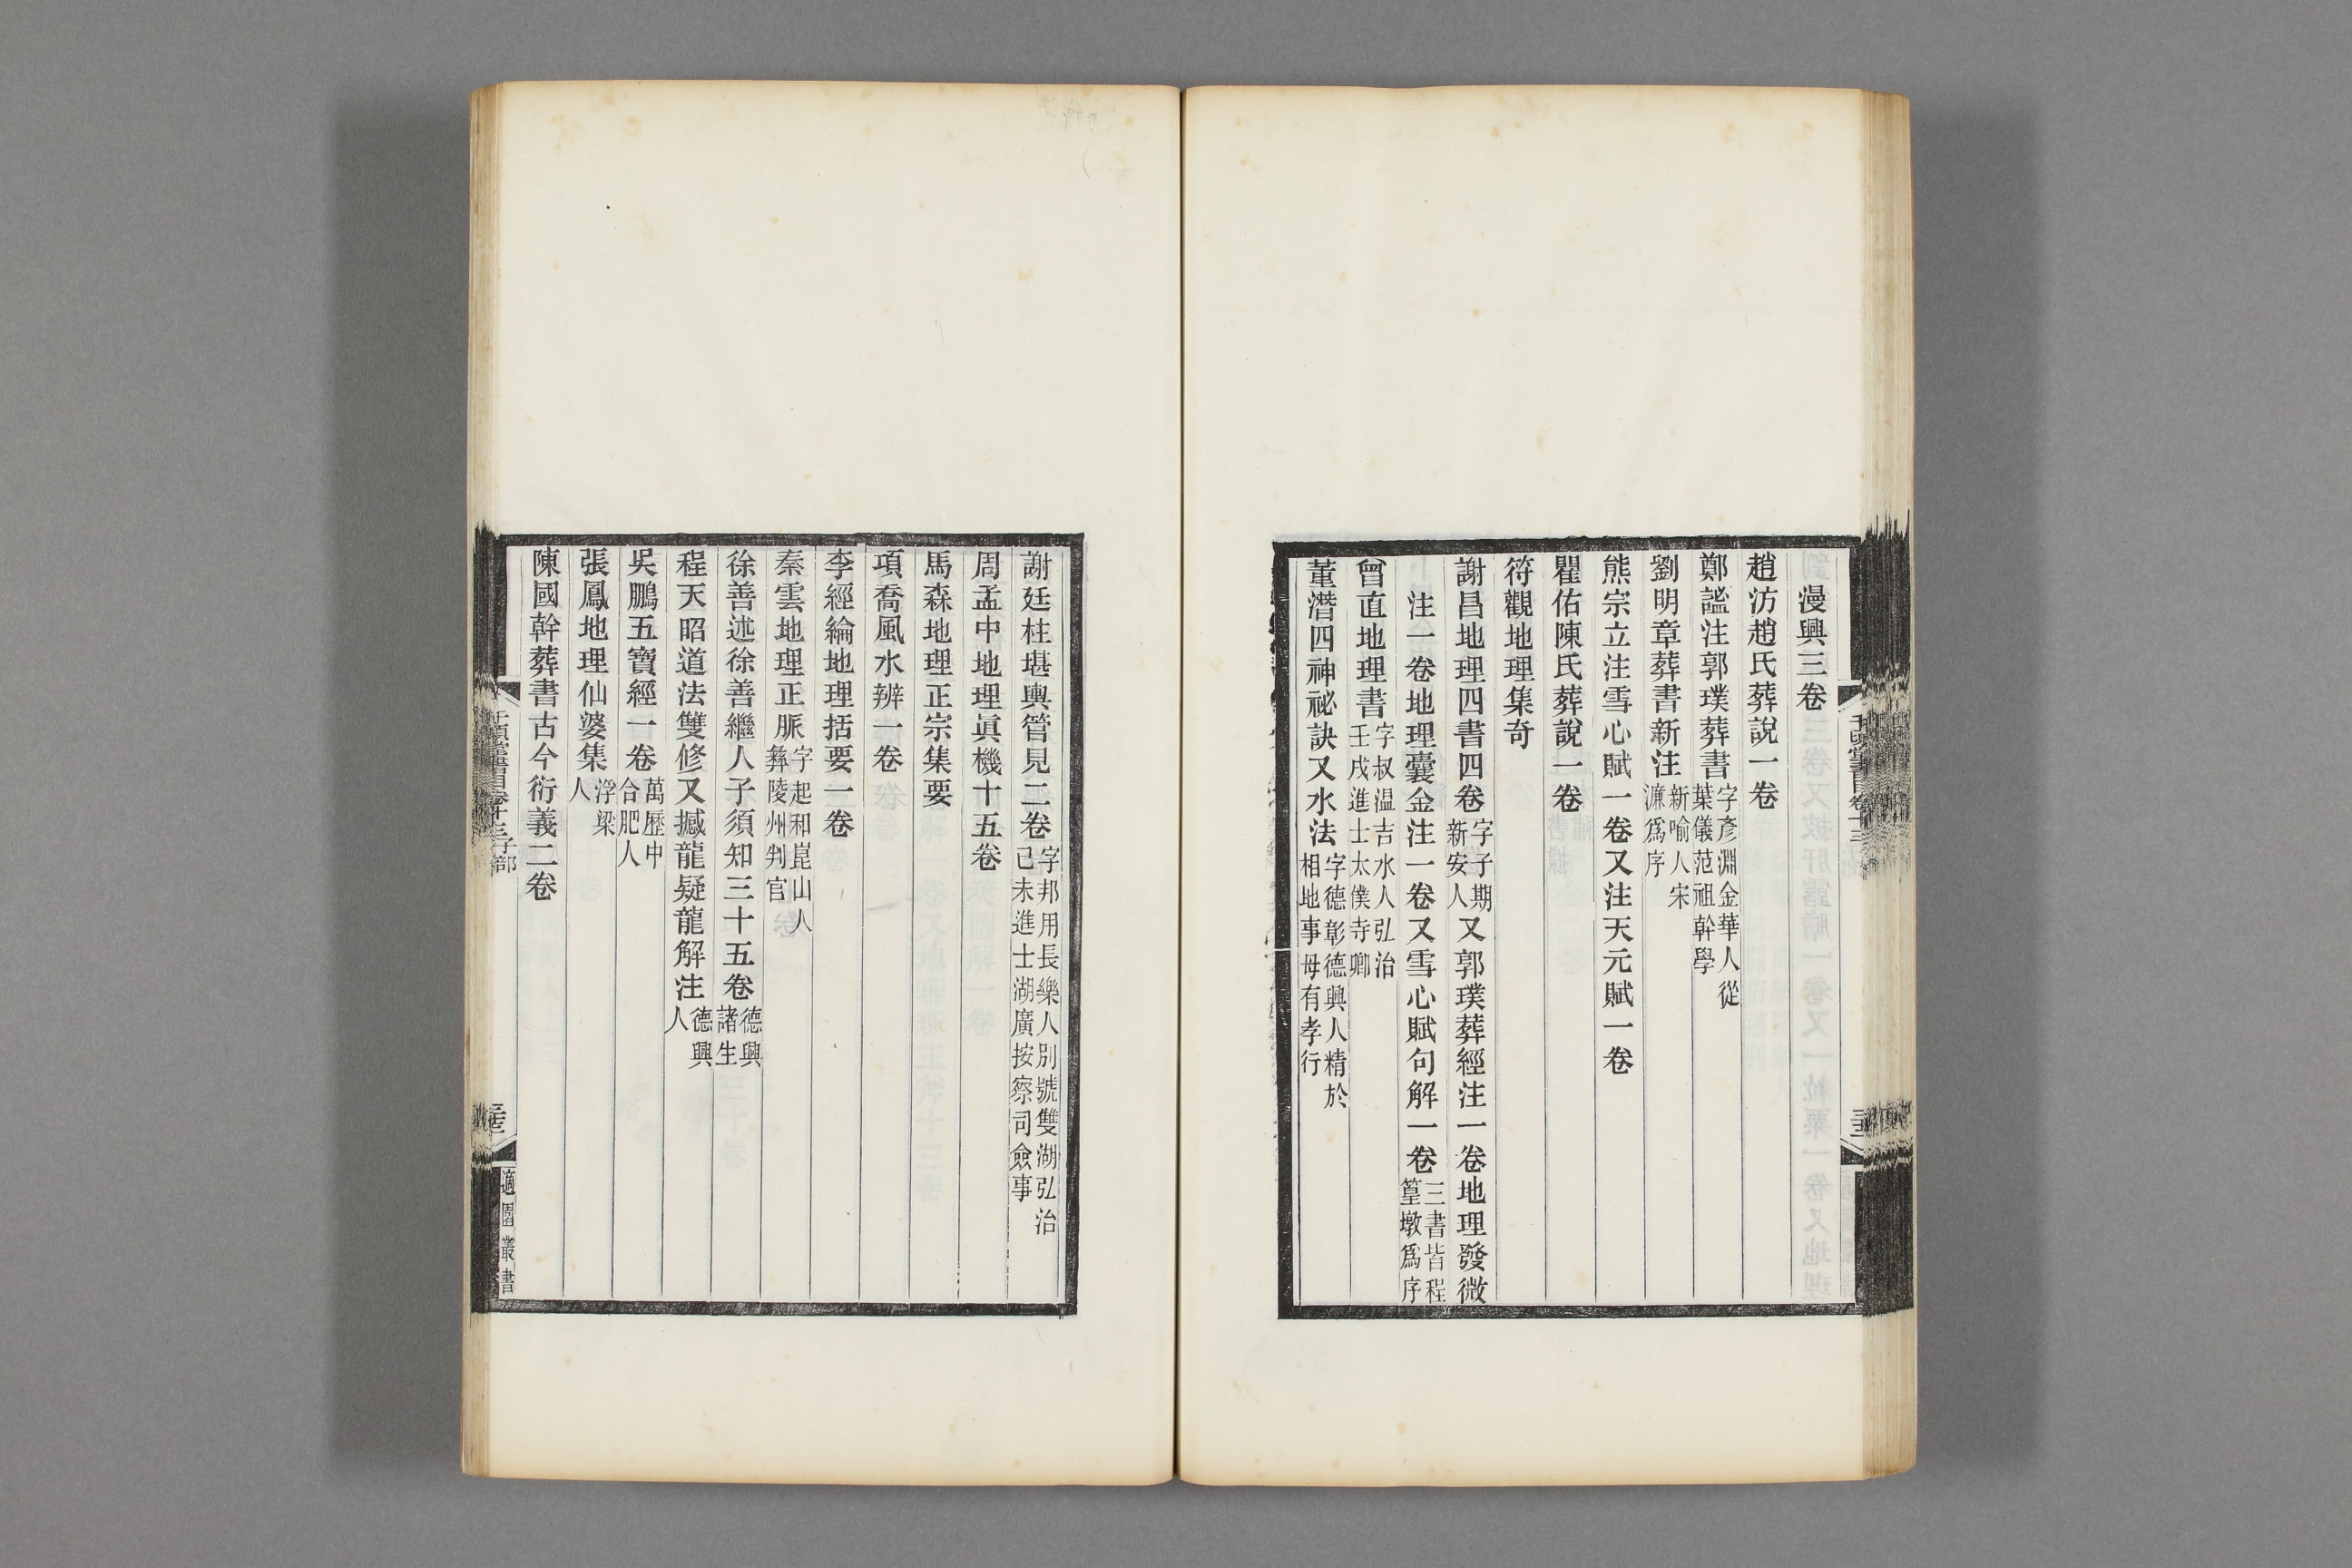 漫興三卷
趙汸趙氏葬說一卷
鄭謐注郭璞葬書字彥淵金華人從葉儀范祖幹學
劉明章葬書新注新喻人宋濂爲序
熊宗立注雪心賦一卷又注天元賦一卷
瞿佑陳氏葬說一卷
符觀地理集奇
謝昌地理四書四卷字子期新安人又郭璞葬經注一卷地理發微
注一卷地理囊金注一卷又雪心賦句解一卷三書皆程篁墩爲序
曾直地理書字叔温吉水人弘治壬戌進士太僕寺卿
董潛四神祕訣又水法字德彰德興人精於相地事母有孝行
謝廷柱堪輿管見二卷字邦用長樂人別號雙湖弘治己未進士湖廣按察司僉事
周孟中地理眞機十五卷
馬森地理正宗集要
項喬風水辨一卷
李經綸地理括要一卷
秦雲地理正脈字起和崑山人彝陵州判官
徐善述徐善繼人子須知三十五卷德興諸生
程天昭道法雙修又撼龍疑龍解注德興人
吳鵬五寶經一卷萬歷中合肥人
張鳳地理仙婆集浮梁人
陳國幹葬書古今衍義二卷
千頃堂書目卷十三子部
適園叢書